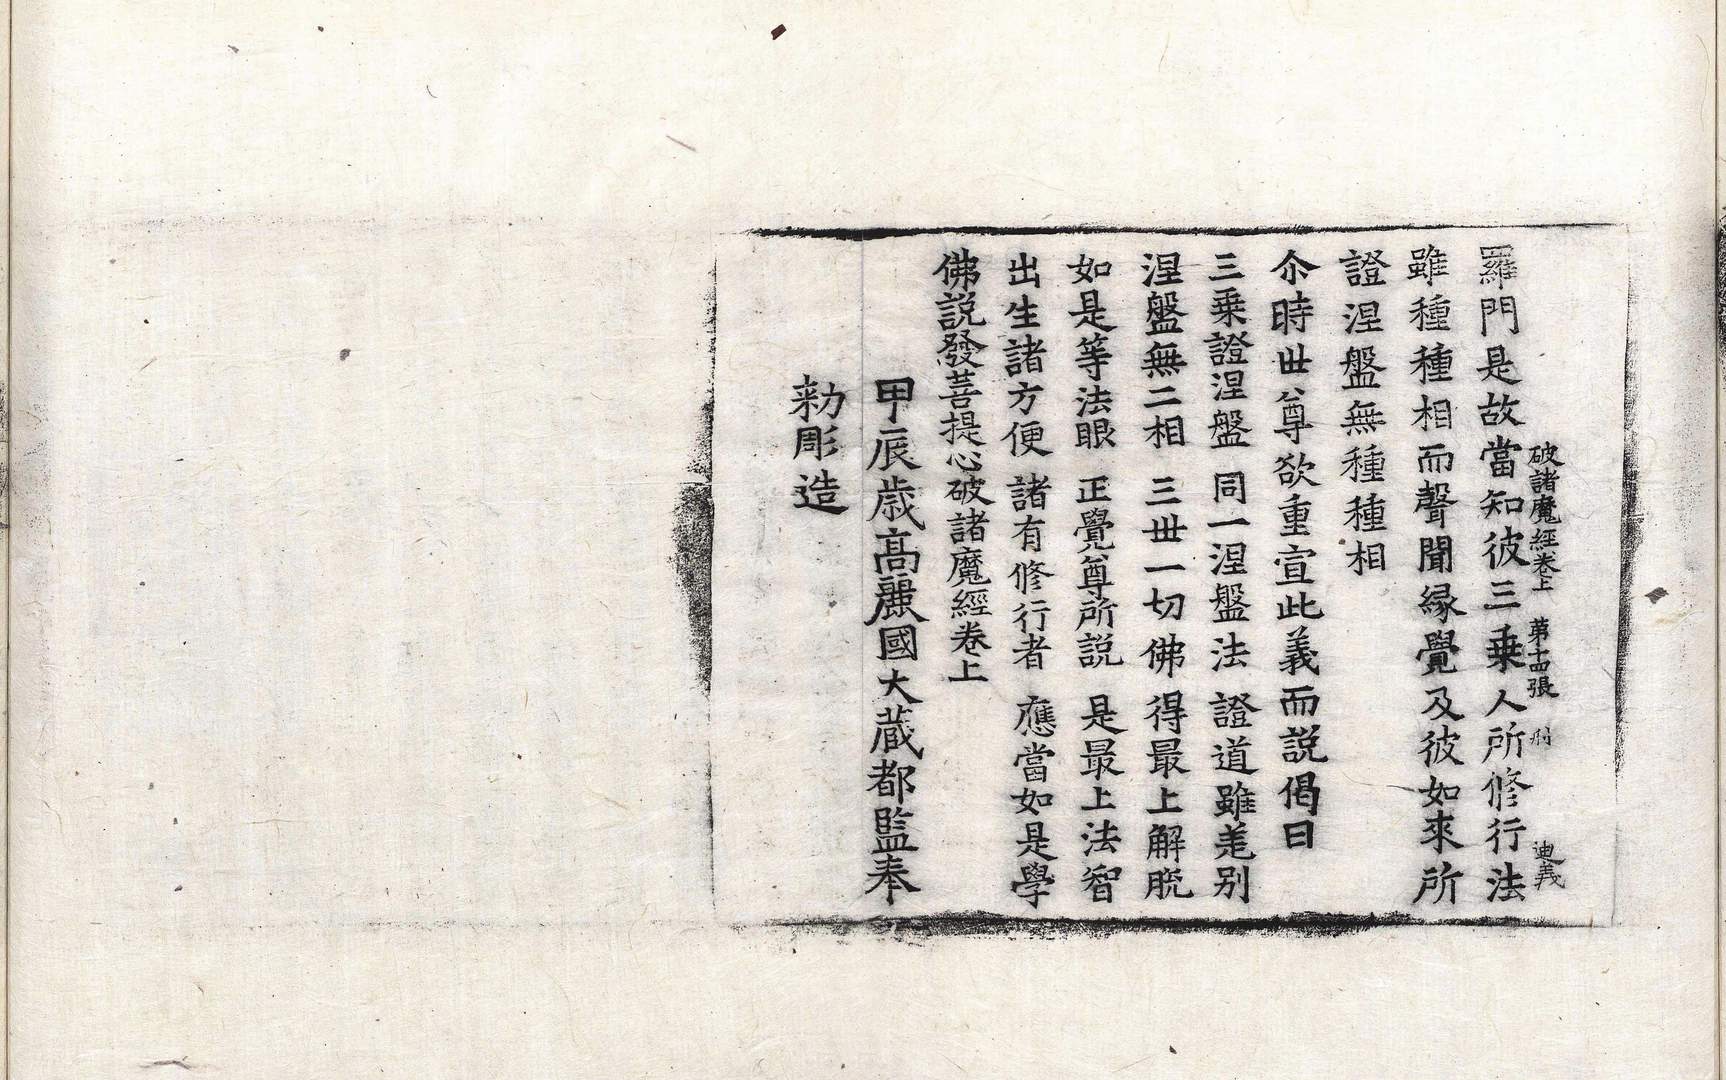 破諸魔經卷上 第十四張 刑 迪義
羅門是故當知彼三乗人所修行法
雖種種相而聲聞縁覺及彼如來所
證涅盤無種種相
尒時世尊欲重宣此義而説偈曰
三乗證涅盤 同一涅盤法 證道雖差别
涅盤無二相 三世一切佛 得最上解脱
如是等法眼 正覺尊所説 是最上法智
出生諸方便 諸有修行者 應當如是學
佛説發菩提心破諸魔經卷上
甲辰歳高麗國大藏都監奉
勑彫造